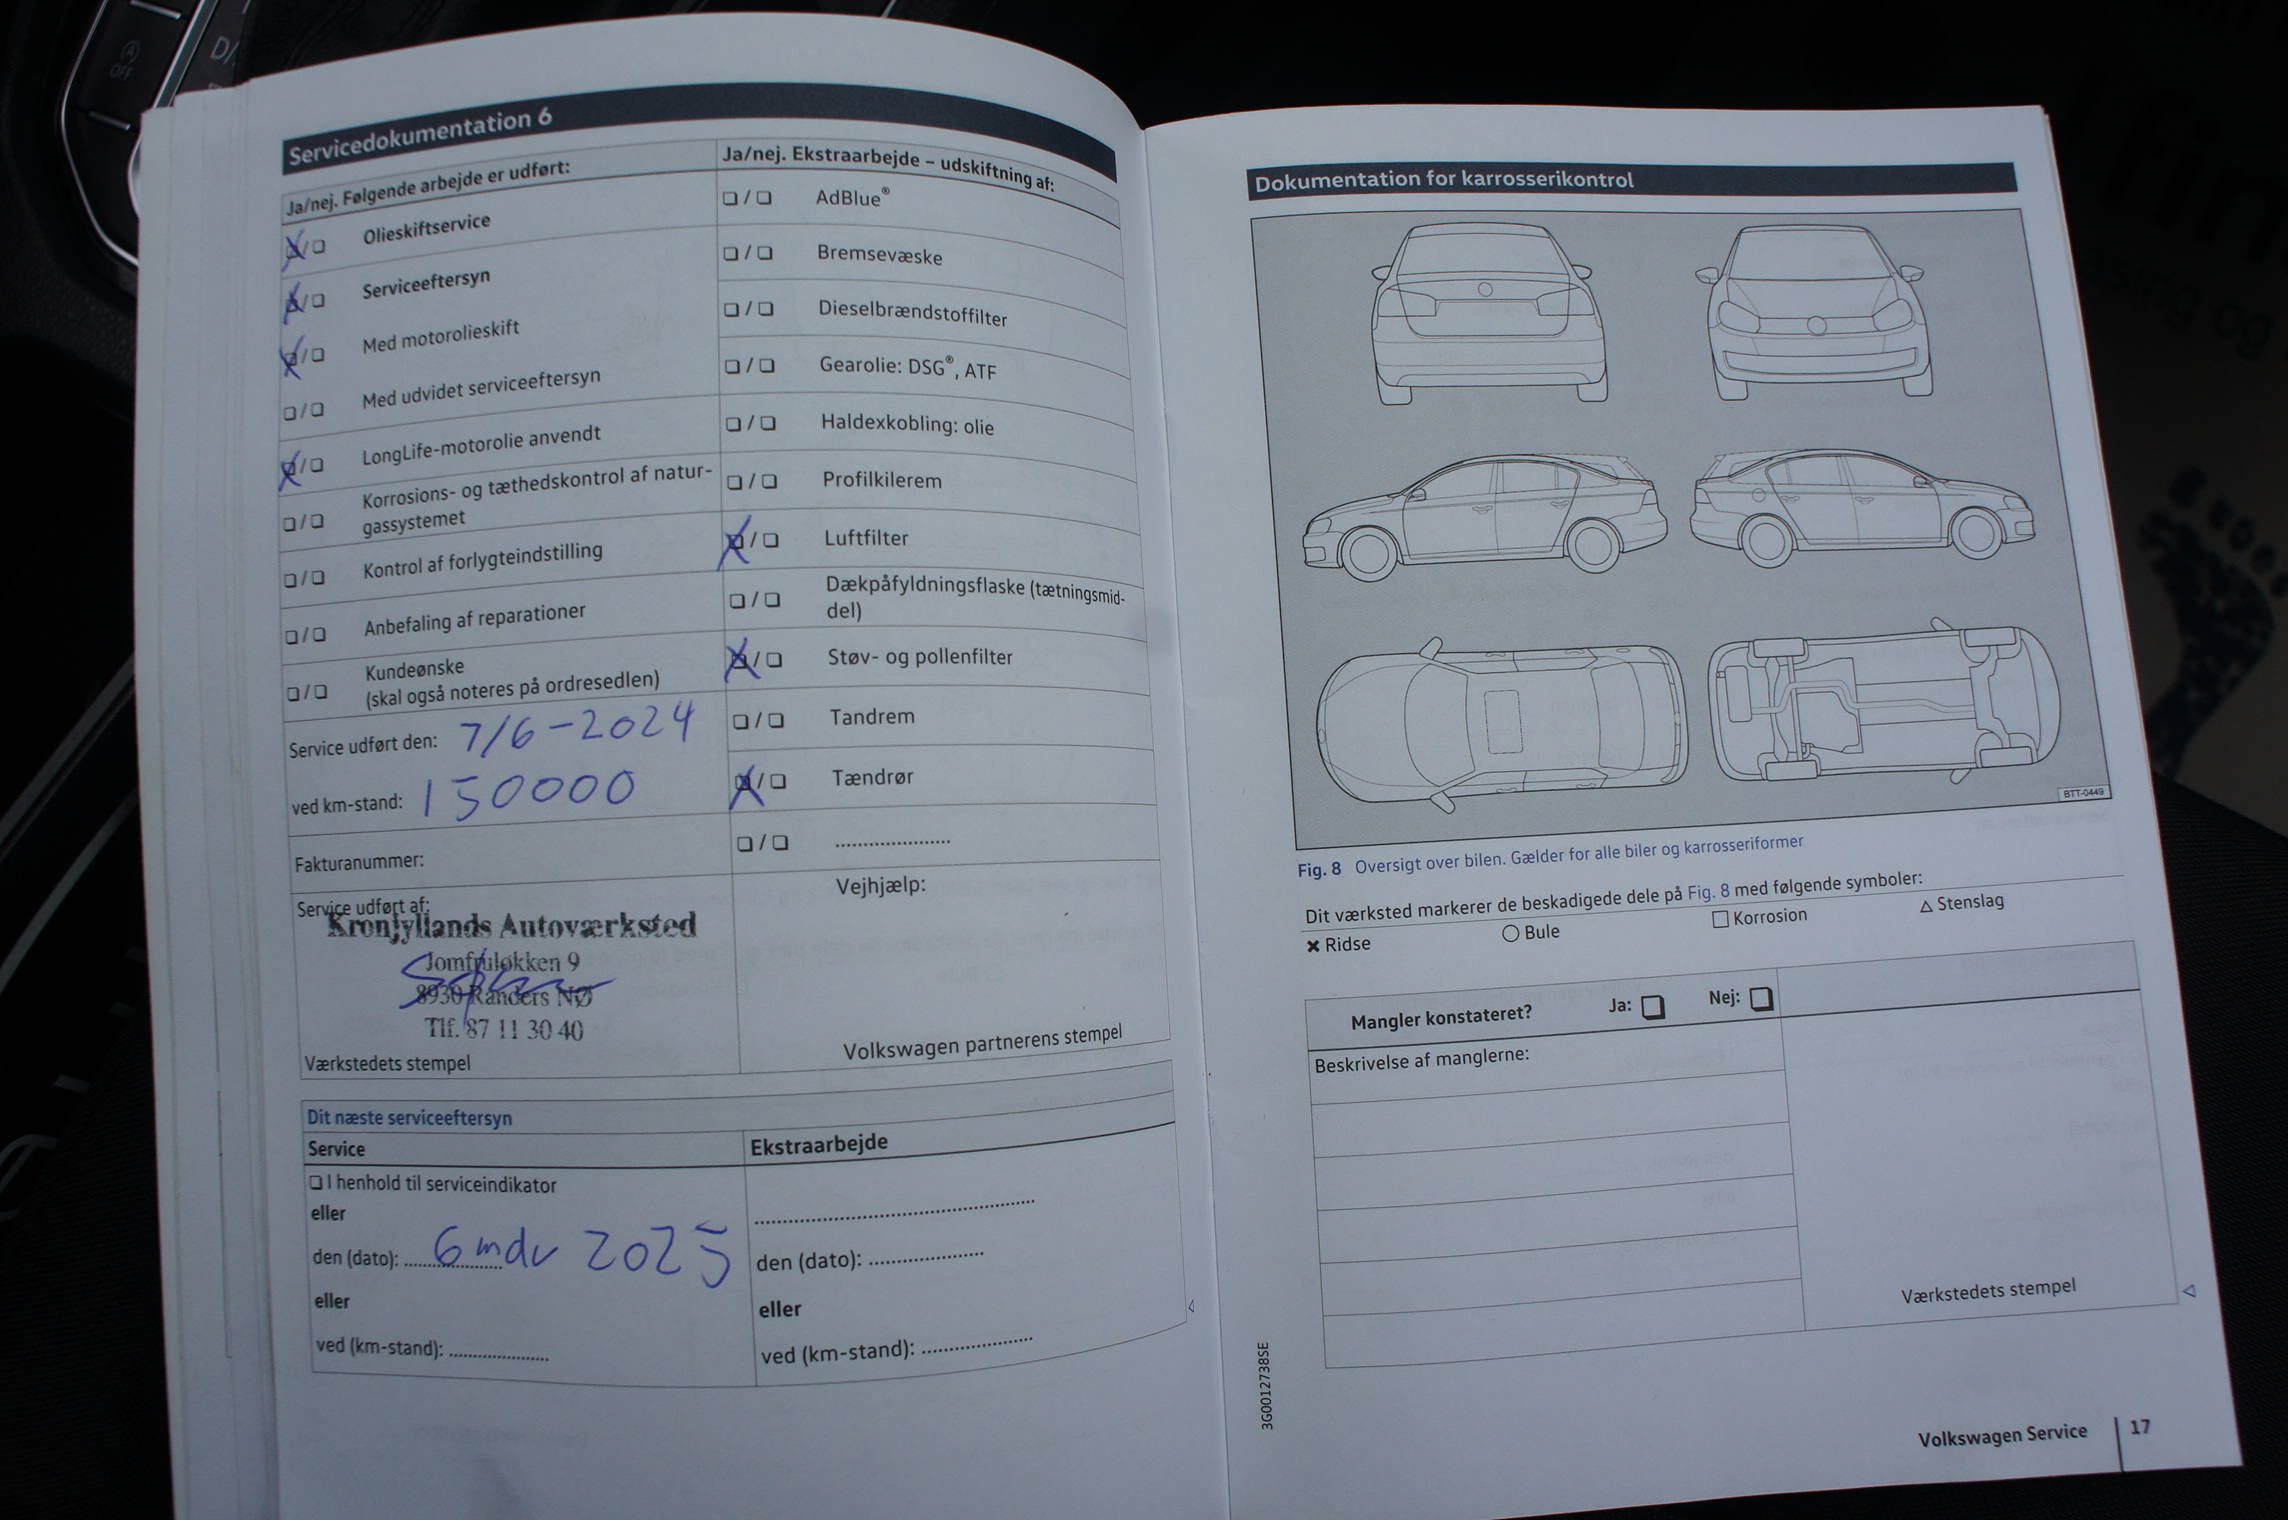 Servicedokumentation 6
Ja/nej. Følgende arbejde er udført:
Olieskiftservice
Serviceeftersyn
Med motorolieskift
Med udvidet serviceeftersyn
LongLife-motorolie anvendt
Korrosions- og tæthedskontrol af natur-
gassystemet
Kontrol af forlygteindstilling
Anbefaling af reparationer
Kundeønske
(skal også noteres på ordresedlen)
Service udført den: 7/6-2024
ved km-stand: 150000
Fakturanummer:
Service udført af:
Kronjyllands Autoværksted
Jomfruløkken 9
8930 Randers NØ
Tlf. 87 11 30 40
Værkstedets stempel
Ja/nej. Ekstraarbejde – udskiftning af:
AdBlue®
Bremsevæske
Dieselbrændstoffilter
Gearolie: DSG®, ATF
Haldexkobling: olie
Profilkilerem
Luftfilter
Dækpåfyldningsflaske (tætningsmid-
del)
Støv- og pollenfilter
Tandrem
Tændrør
....................
Vejhjælp:
Volkswagen partnerens stempel
Dit næste serviceeftersyn
Service
I henhold til serviceindikator
eller
den (dato): 6 mdv 2025
eller
ved (km-stand): ....................
Ekstraarbejde
den (dato): ....................
eller
ved (km-stand): ....................
Dokumentation for karrosserikontrol
BTT-0449
Fig. 8 Oversigt over bilen. Gælder for alle biler og karrosseriformer
Dit værksted markerer de beskadigede dele på Fig. 8 med følgende symboler:
✖ Ridse ○ Bule □ Korrosion △ Stenslag
Mangler konstateret? Ja: ❑ Nej: ❑
Beskrivelse af manglerne:
Værkstedets stempel
3G0012738SE
Volkswagen Service 17
OFF
D/